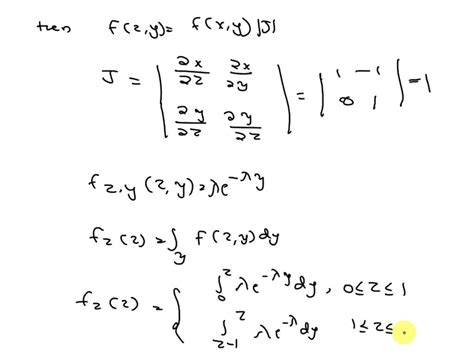 then f(z,y) = f(x,y) |J|
J = | ∂x/∂z ∂x/∂y | = | 1 -1 | = 1
| ∂y/∂z ∂y/∂z | | 0 1 |
f z,y (z,y) = λe^-λy
f z (z) = ∫y f(z,y) dy
f z (z) = { ∫0^z λe^-λy dy, 0≤z≤1
∫z-1^z λe^-λ dy 1≤z≤.